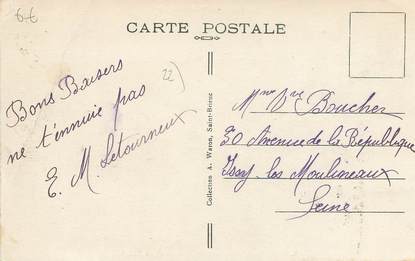 6€
CARTE POSTALE
22)
Bons Baisers
ne t'ennuie pas
E. M. Letourneux
Collection A. Waron, Saint-Brieuc
Mme Vve Boucher
30 Avenue de la République
Issy-les Moulineaux
Seine